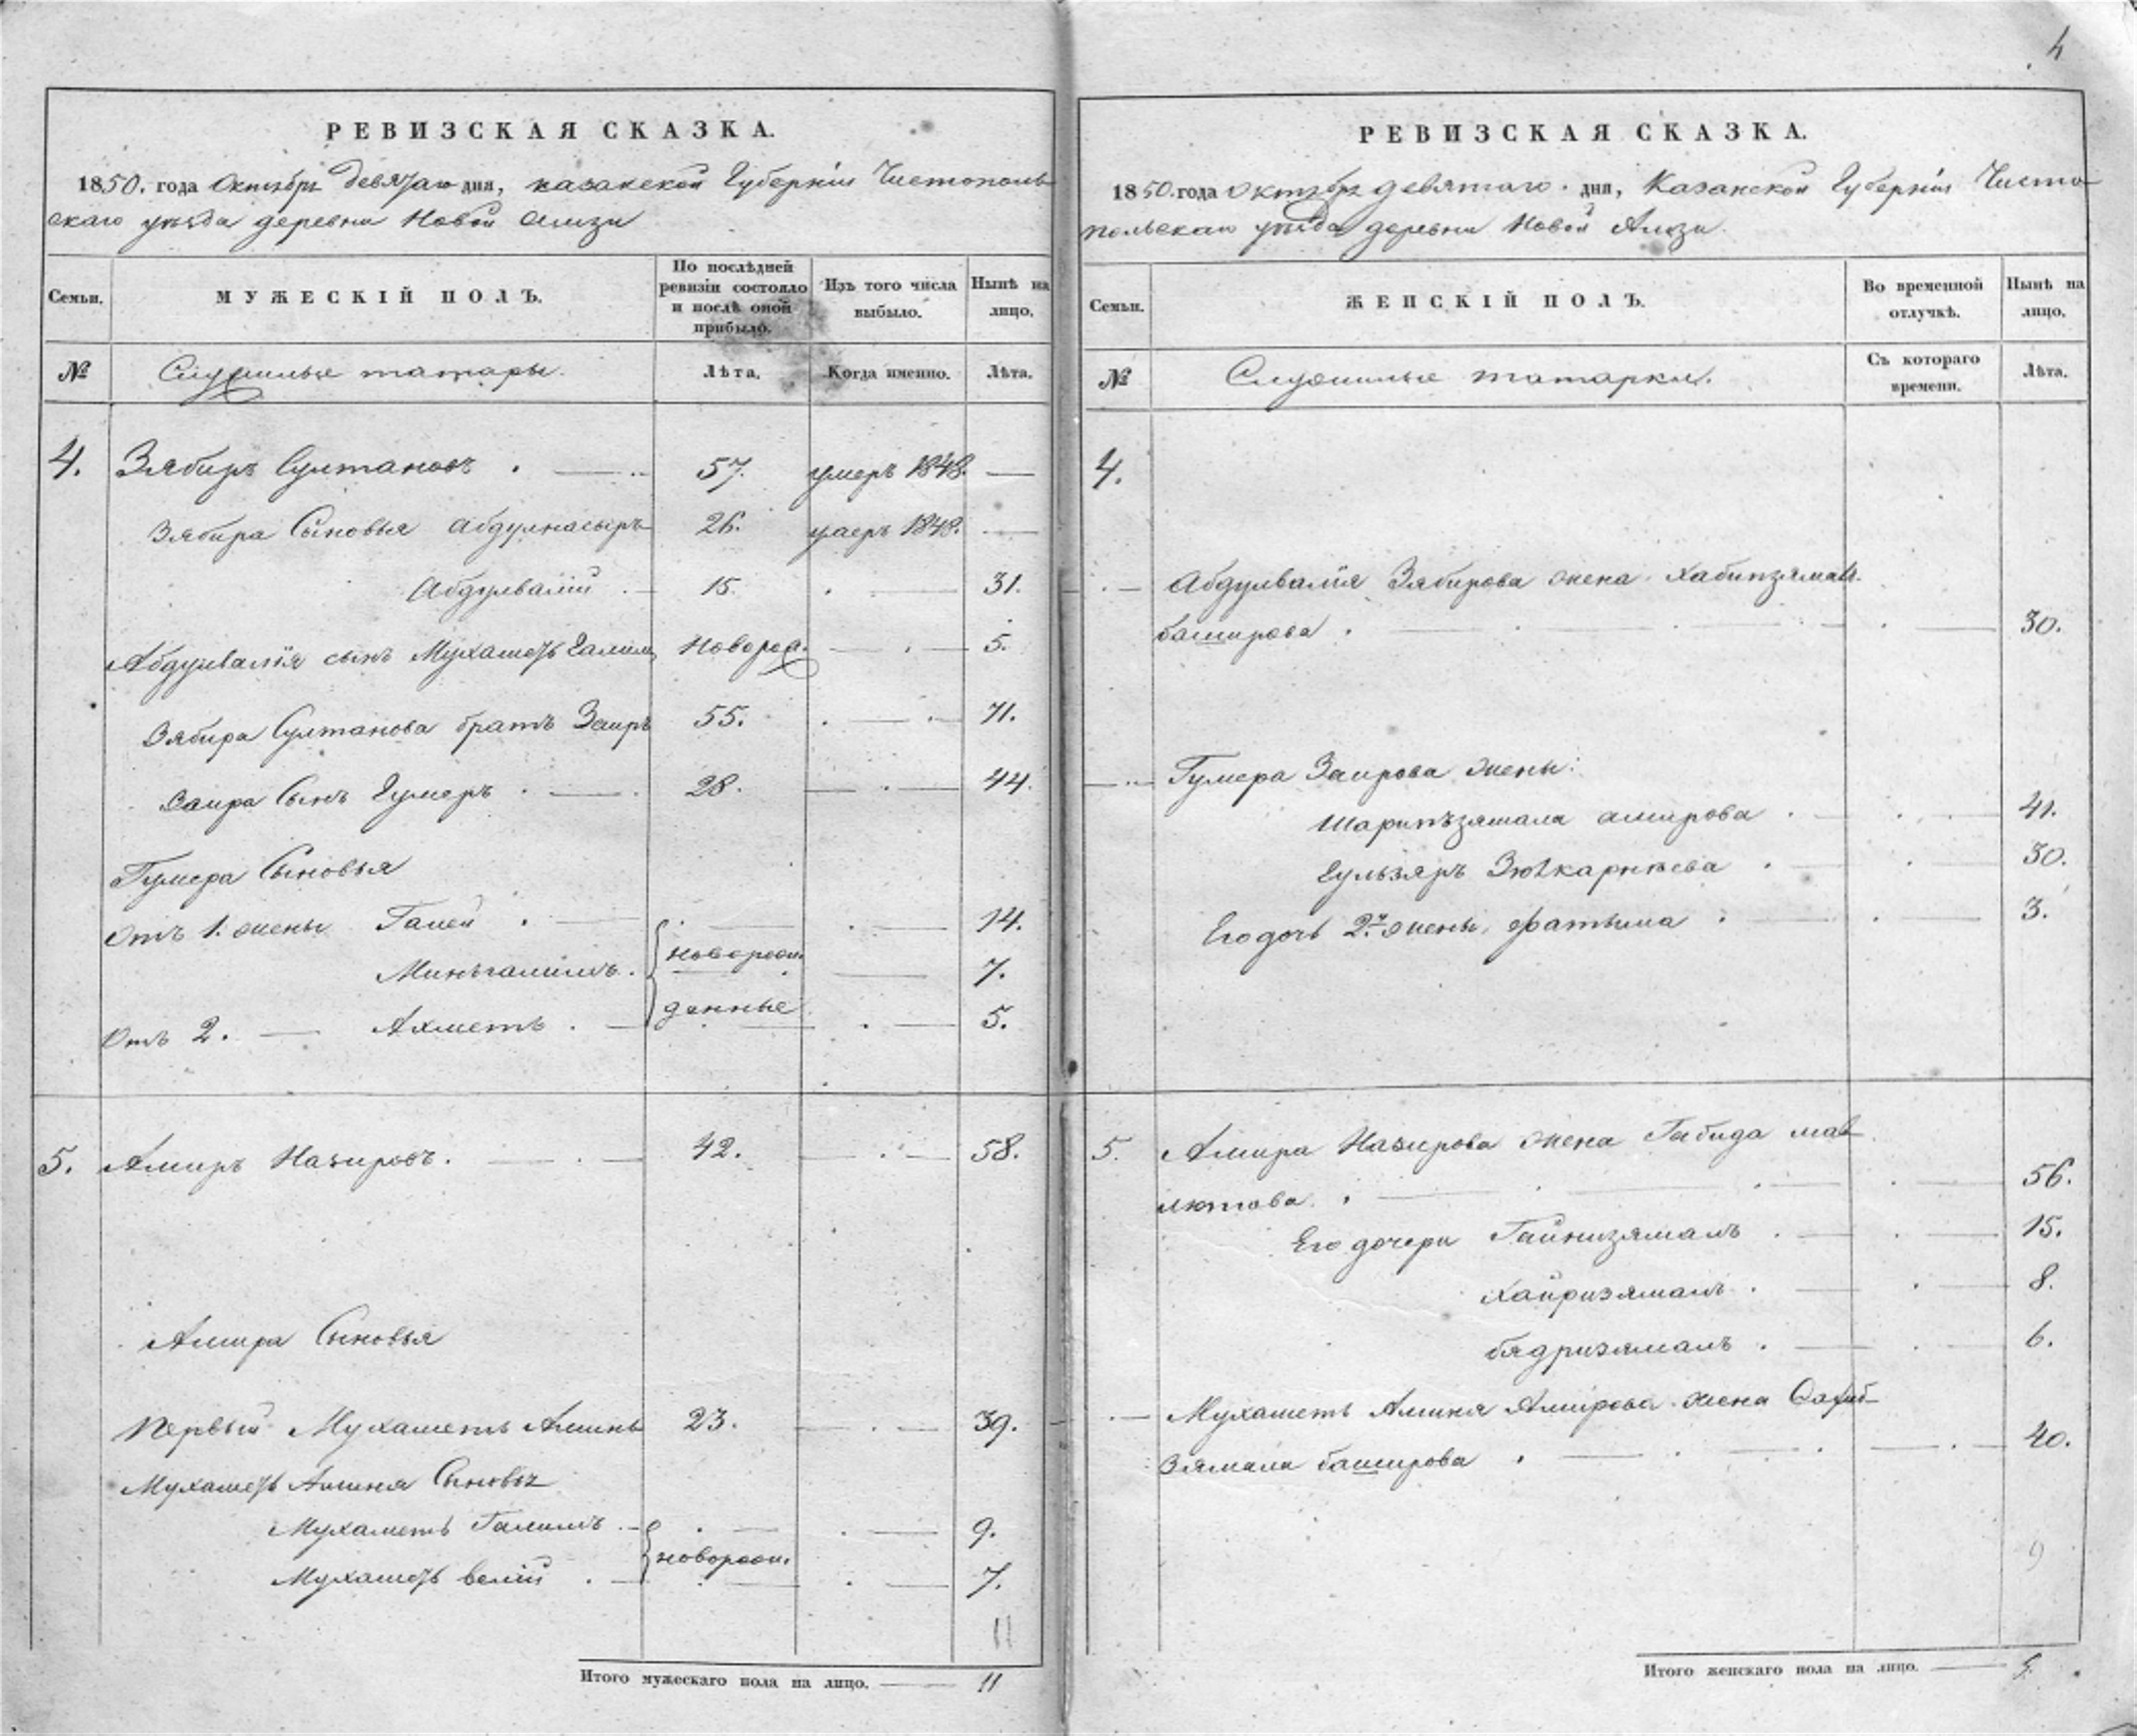 4
РЕВИЗСКАЯ СКАЗКА.
1850. года Октября девятаго дня, Казанской Губерніи Чистополь-
скаго уѣзда деревни Новой Амзи
Семьи.
МУЖЕСКІЙ ПОЛЪ.
По послѣдней ревизіи состояло и послѣ оной прибыло.
Изъ того числа выбыло.
Нынѣ на лицо.
№
Служилые татары.
Лѣта.
Когда именно.
Лѣта.
4. Зябиръ Султановъ . — 57. умеръ 1848. —
Зябира Сыновья Абдулнасыръ 26. умеръ 1848. —
Абдулвалій . — 15. . — 31.
Абдулвалія сынъ Мухаметь Галим Новорож. — . — 5.
Зябира Султанова братъ Заиръ 55. . — . 71.
Заира Сынъ Гумеръ . — . 28. — . — 44.
Гумера Сыновья
Отъ 1. жены Галей . — . — 14.
Миньгалимъ . новорож- — 7.
Отъ 2. — Ахметь . — денные . — 5.
5. Амиръ Назировъ. — . — 42. — . — 58.
Амира Сыновья
Первый Мухаметь Аминь 23. — . — 39.
Мухаметь Аминя Сыновья
Мухаметь Галимъ . — . — 9.
Мухаметь велій . — новорож. . — 7.
11
Итого мужескаго пола на лицо. — 11
РЕВИЗСКАЯ СКАЗКА.
1850. года Октября девятаго. дня, Казанской Губерніи Чисто-
польскаго уѣзда деревни Новой Амзи.
Семьи.
ЖЕНСКІЙ ПОЛЪ.
Во временной отлучкѣ.
Нынѣ на лицо.
№
Служилые татарки.
Съ котораго времени.
Лѣта.
4.
. — Абдулвалія Зябирова жена Хабипзямал.
баширова . — . — . — 30.
— Гумера Заирова жены:
Шарипъзямала амирова . — . — 41.
Гульзяръ Зюлкарнѣева . — . 30.
Его дочь 2й жены, фатыма . — . — 3.
5. Амира Назирова жена Габида мав-
лютова . — . — . — 56.
Его дочери Гайнизямалъ . — . — 15.
Хайризямалъ . — . — 8.
бядризямалъ . — . — 6.
. — Мухаметь Аминя Амирова жена
Зямала баширова . — . — . — 40.
9
Итого женскаго пола на лицо. —